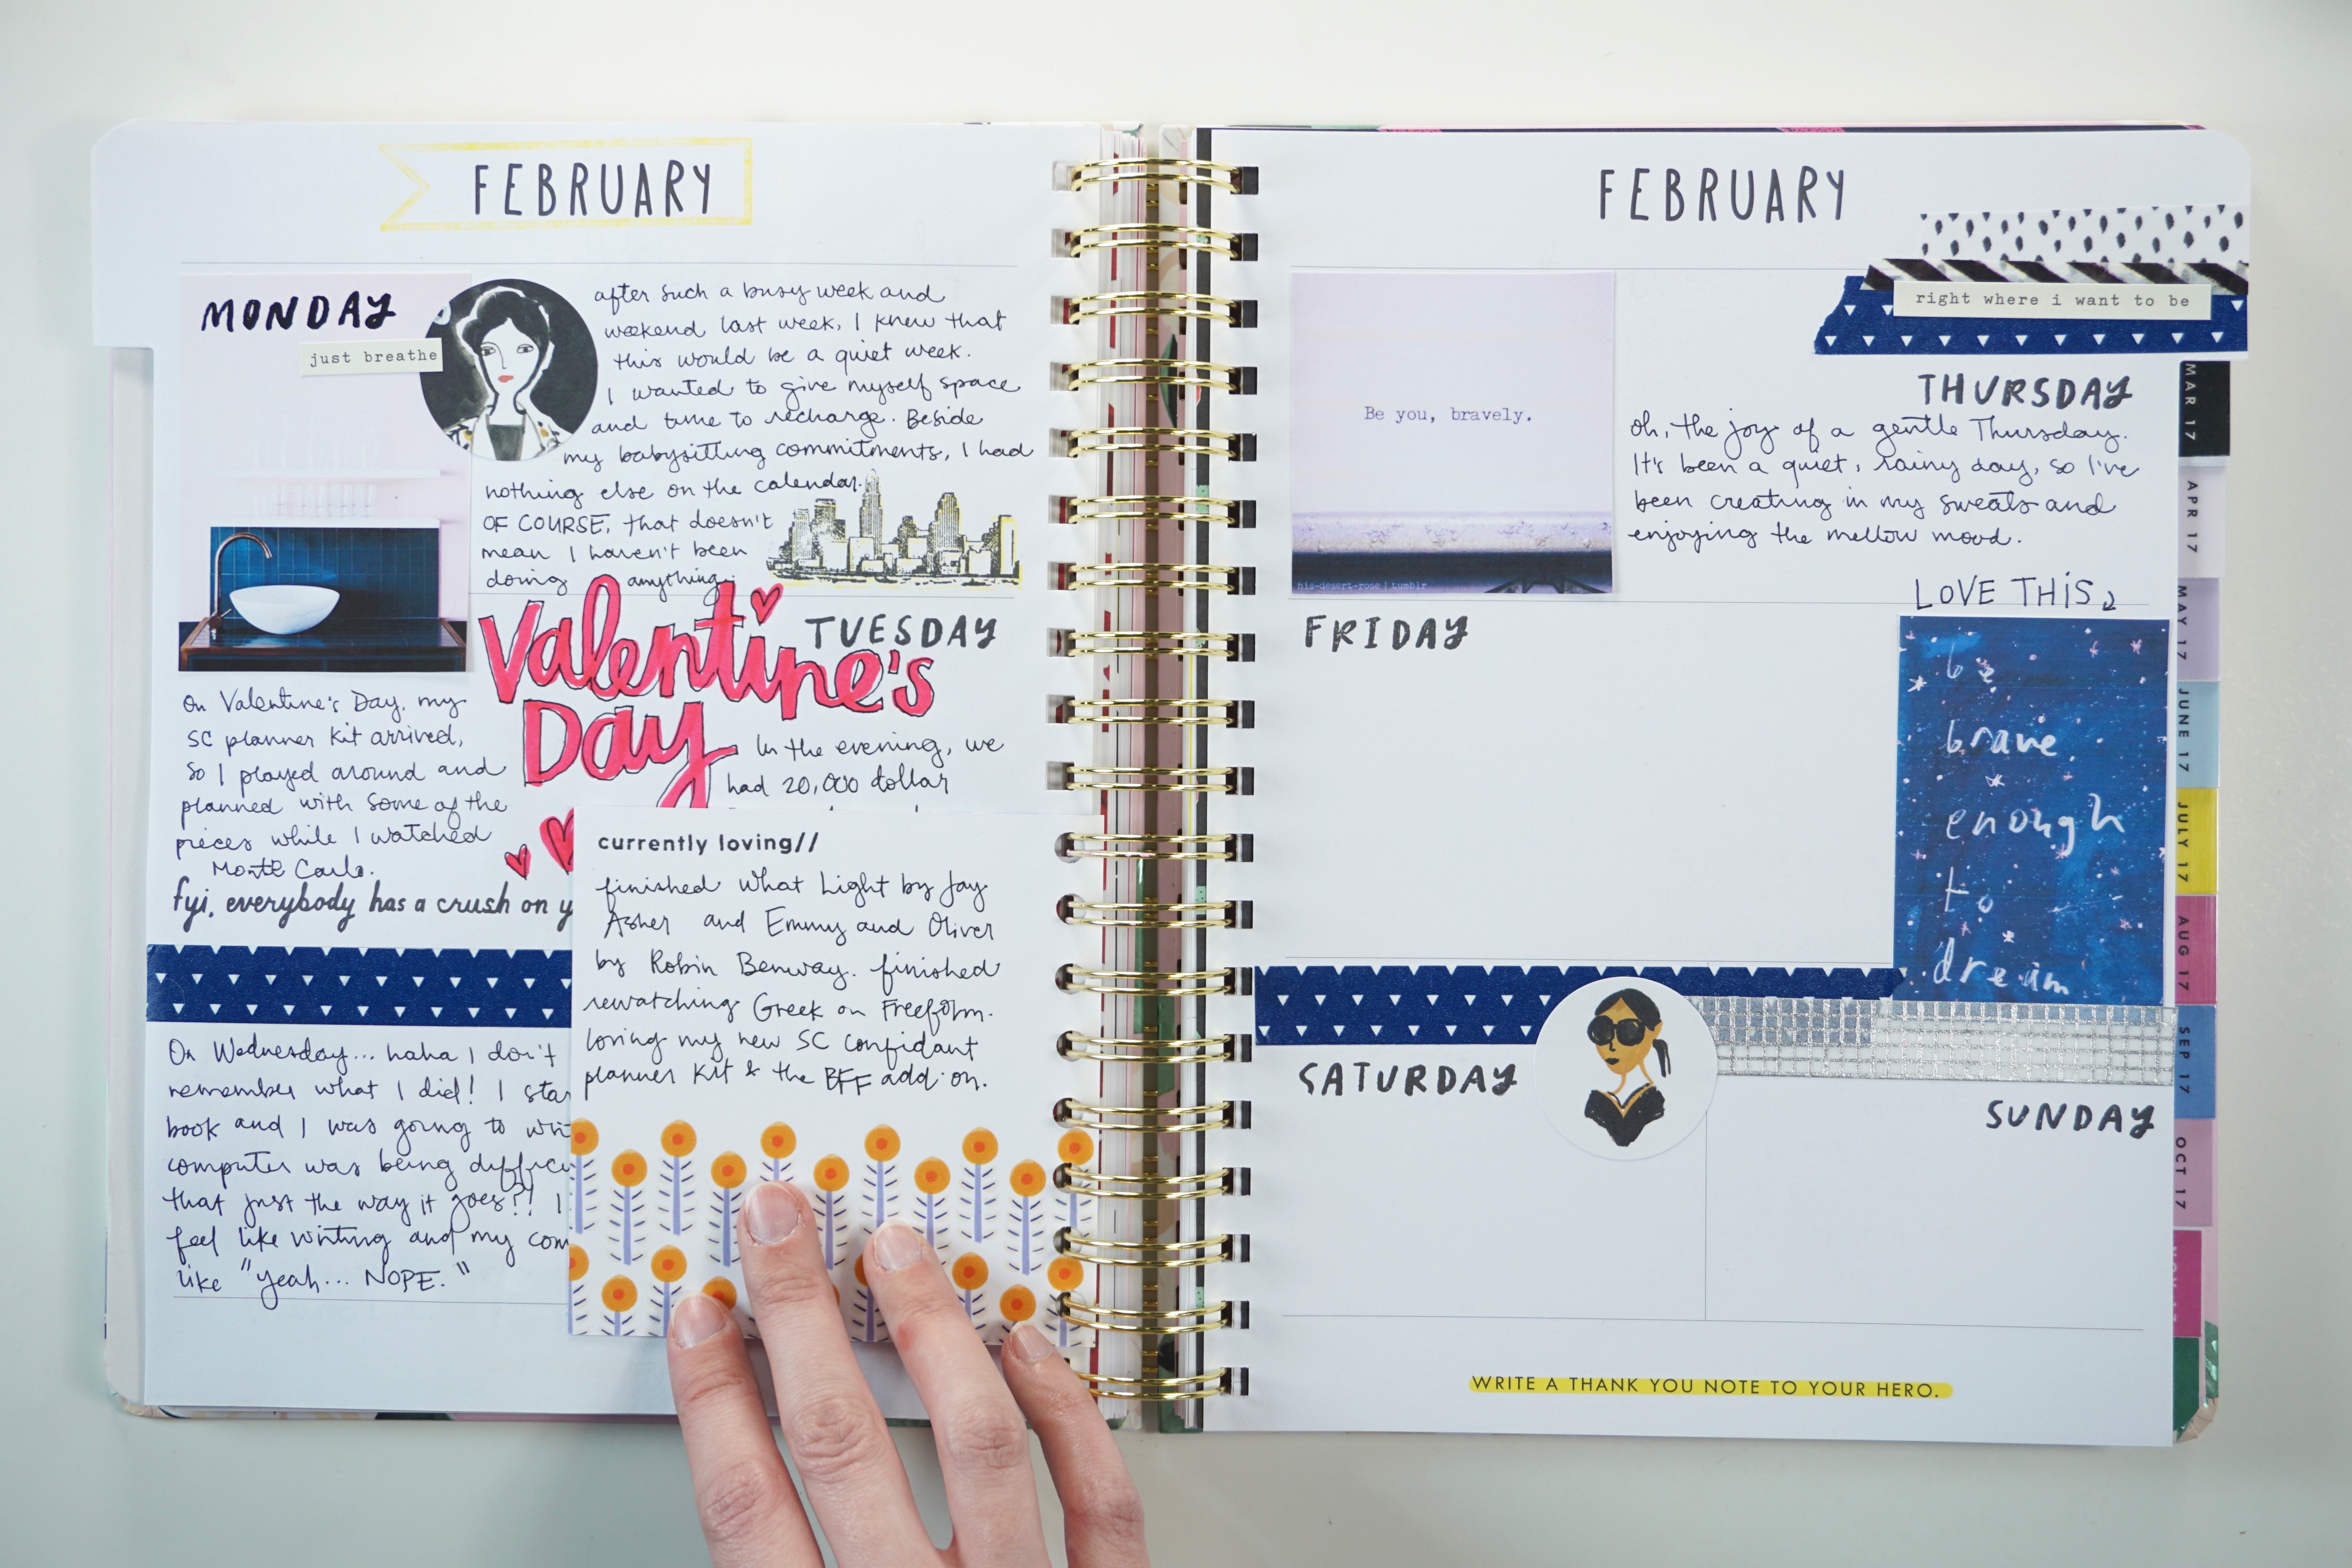 FEBRUARY
MONDAY
just breathe
after such a busy week and
weekend last week, I knew that
this would be a quiet week.
I wanted to give myself space
and time to recharge. Beside
my babysitting commitments, I had
nothing else on the calendar.
OF COURSE, that doesn't
mean I haven't been
doing anything.
TUESDAY
Valentine's
Day
On Valentine's Day, my
SC planner kit arrived,
so I played around and
planned with some of the
pieces while I watched
Monte Carlo.
In the evening, we
had 20,000 dollar
fyi, everybody has a crush on
On Wednesday... haha I don't
remember what I did! I
book and I was going to
computer was being
that just the way it goes?! I
feel like writing and my
like "yeah... NOPE."
currently loving//
finished What Light by Jay
Asher and Emmy and Oliver
by Robin Benway. finished
rewatching Greek on Freeform.
loving my new SC confidant
planner kit & the BFF add-on.
FEBRUARY
right where i want to be
Be you, bravely.
his-desert-rose | tumblr
THURSDAY
Oh, the joy of a gentle Thursday.
It's been a quiet, rainy day, so I've
been creating in my sweats and
enjoying the mellow mood.
LOVE THIS
FRIDAY
be
brave
enough
to
dream
SATURDAY
SUNDAY
WRITE A THANK YOU NOTE TO YOUR HERO.
MAR 17
APR 17
MAY 17
JUNE 17
JULY 17
AUG 17
SEP 17
OCT 17